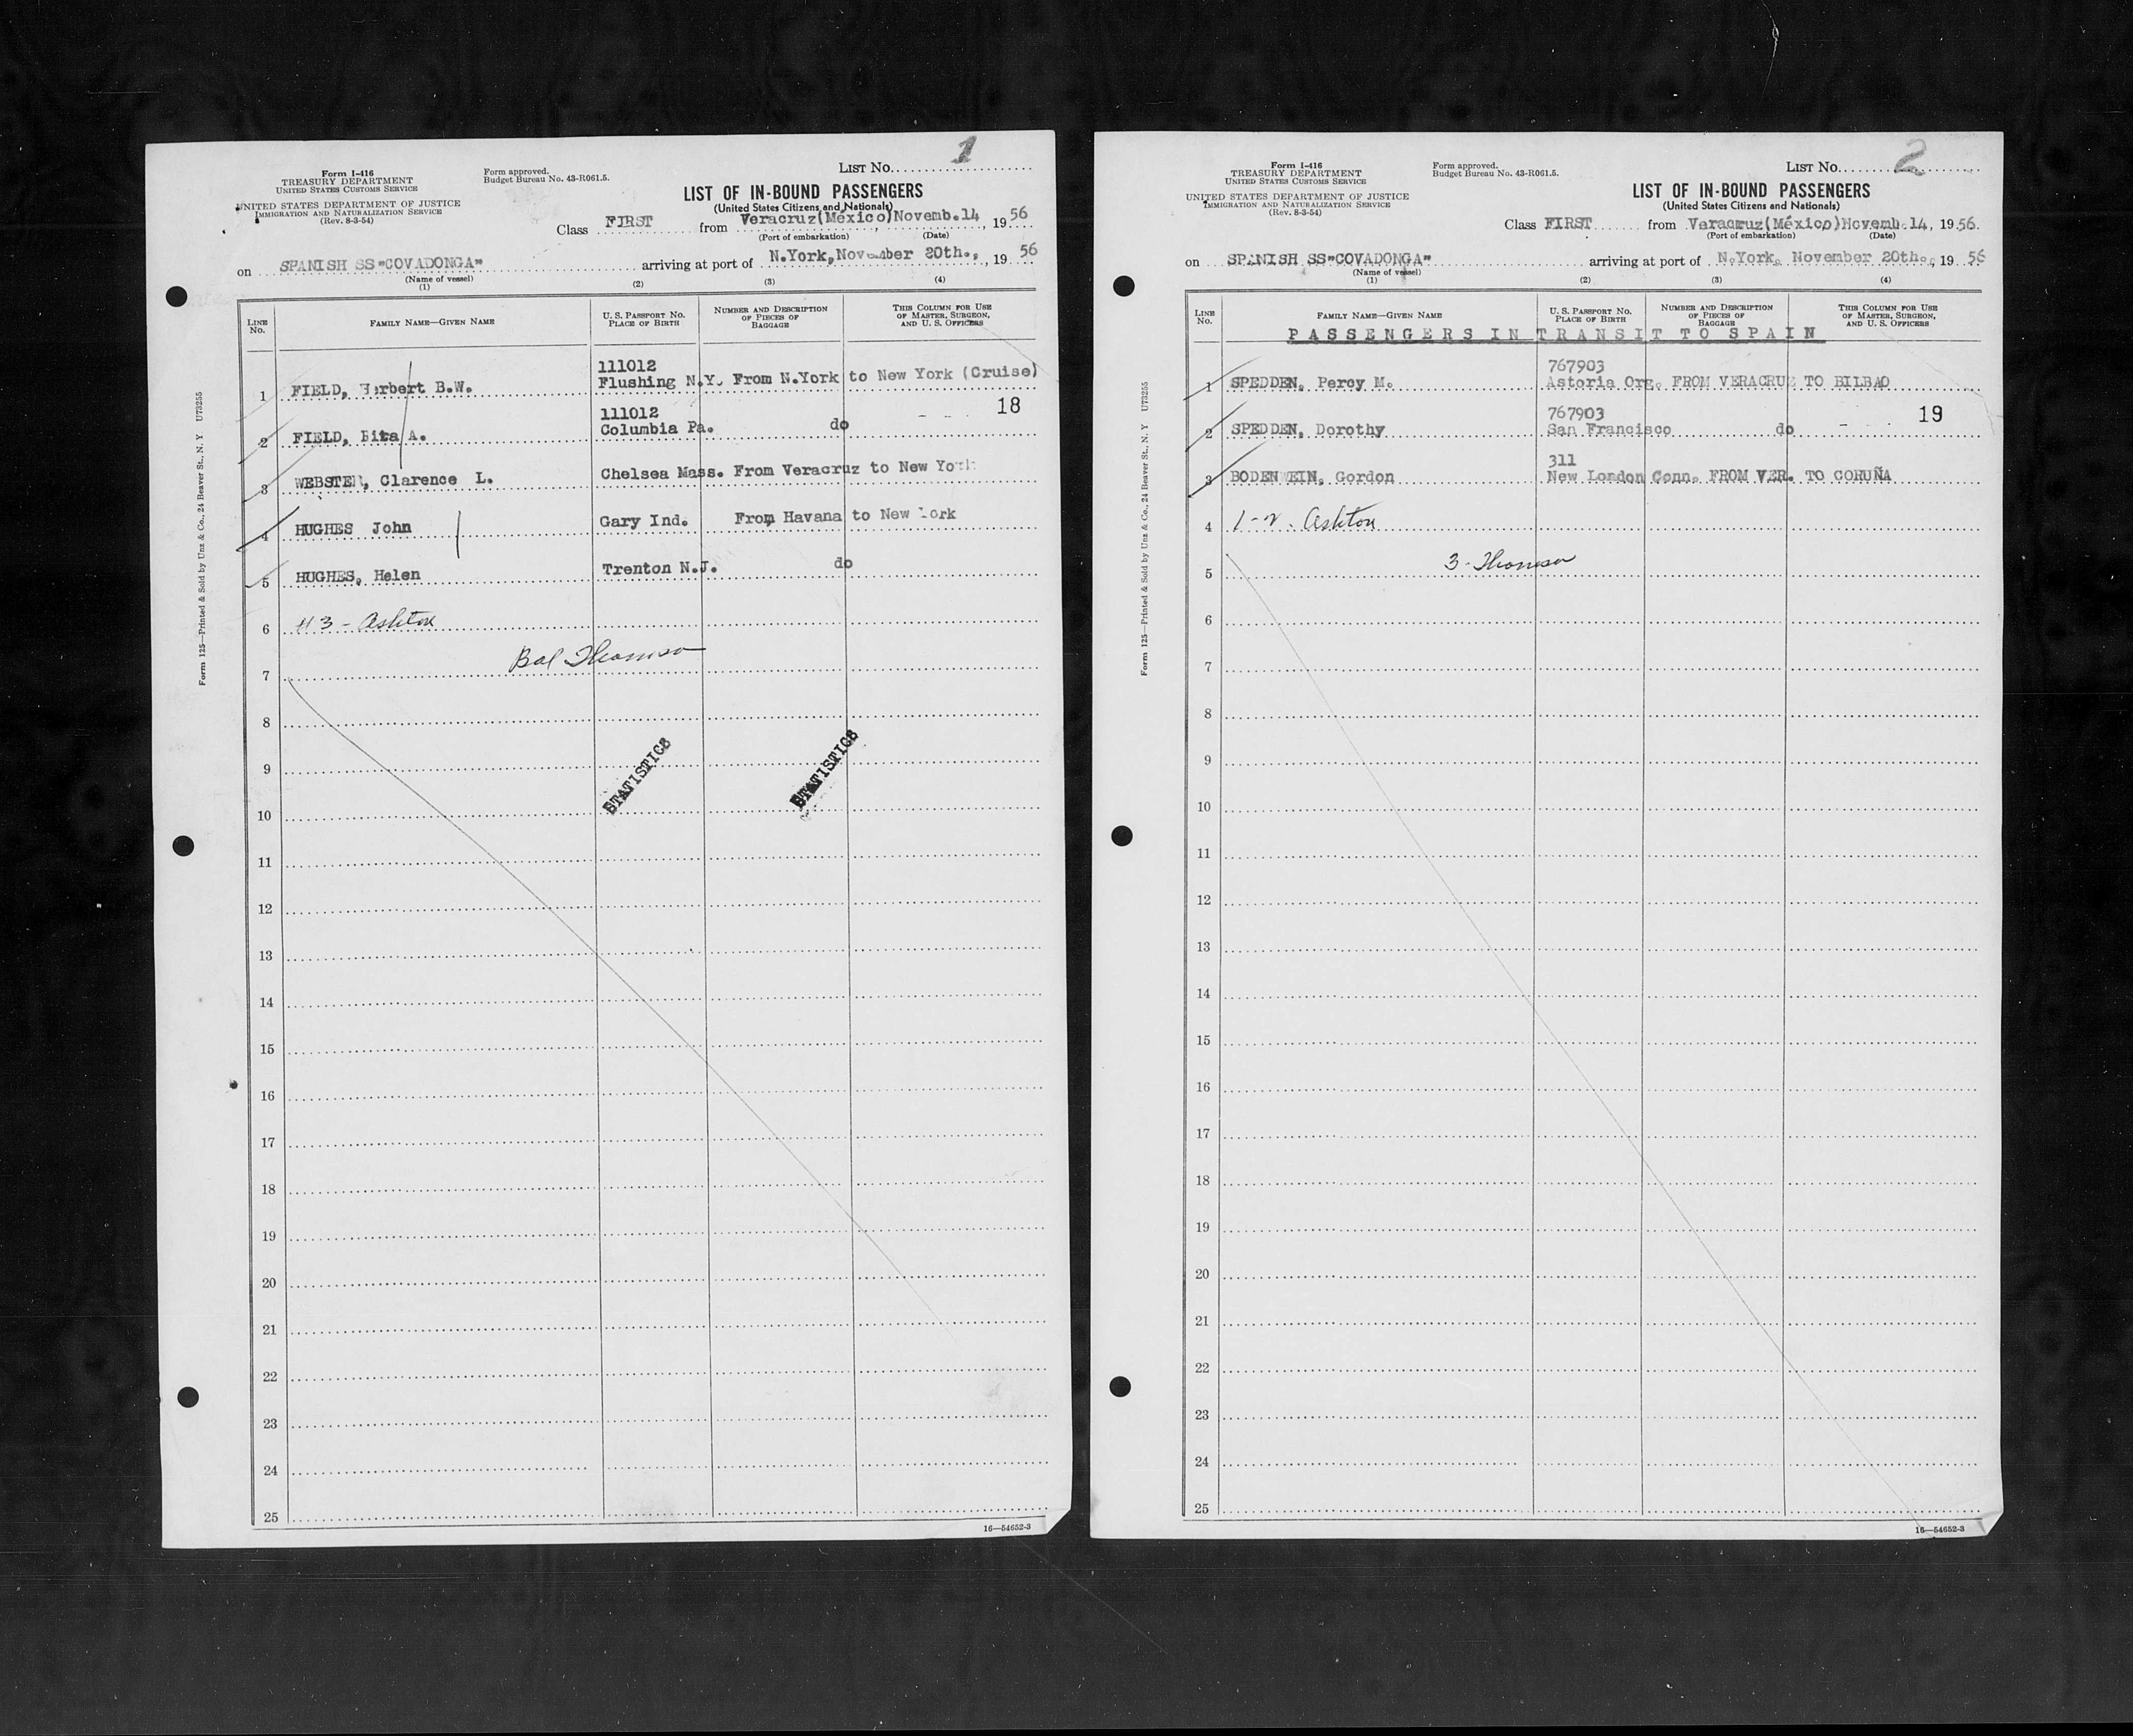 Form I-416
TREASURY DEPARTMENT
UNITED STATES CUSTOMS SERVICE
UNITED STATES DEPARTMENT OF JUSTICE
IMMIGRATION AND NATURALIZATION SERVICE
(Rev. 8-3-54)
Form approved.
Budget Bureau No. 43-R061.5.
LIST No. 1
LIST OF IN-BOUND PASSENGERS
(United States Citizens and Nationals)
Class FIRST from Veracruz(México) Novemb.14, 1956
(Port of embarkation) (Date)
on SPANISH SS"COVADONGA" arriving at port of N.York, November 20th., 1956
(Name of vessel)
(1) (2) (3) (4)
LINE No. FAMILY NAME—GIVEN NAME U. S. PASSPORT No. PLACE OF BIRTH NUMBER AND DESCRIPTION OF PIECES OF BAGGAGE THIS COLUMN FOR USE OF MASTER, SURGEON, AND U. S. OFFICERS
111012
1 FIELD, Herbert B.W. Flushing N.Y. From N.York to New York (Cruise)
111012 18
2 FIELD, Rita A. Columbia Pa. do
3 WEBSTER, Clarence L. Chelsea Mass. From Veracruz to New York
4 HUGHES John Gary Ind. From Havana to New York
5 HUGHES, Helen Trenton N.J. do
6 #3 - Ashton
7 Bal Thomson
8
9
STATISTICS STATISTICS
10
11
12
13
14
15
16
17
18
19
20
21
22
23
24
25
16—54652-3
Form 125—Printed & Sold by Unz & Co., 24 Beaver St., N. Y. U73255
Form I-416
TREASURY DEPARTMENT
UNITED STATES CUSTOMS SERVICE
UNITED STATES DEPARTMENT OF JUSTICE
IMMIGRATION AND NATURALIZATION SERVICE
(Rev. 8-3-54)
Form approved.
Budget Bureau No. 43-R061.5.
LIST No. 2
LIST OF IN-BOUND PASSENGERS
(United States Citizens and Nationals)
Class FIRST from Veracruz(México) Novemb.14, 1956.
(Port of embarkation) (Date)
on SPANISH SS"COVADONGA" arriving at port of N.York, November 20th., 1956
(Name of vessel)
(1) (2) (3) (4)
LINE No. FAMILY NAME—GIVEN NAME U. S. PASSPORT No. PLACE OF BIRTH NUMBER AND DESCRIPTION OF PIECES OF BAGGAGE THIS COLUMN FOR USE OF MASTER, SURGEON, AND U. S. OFFICERS
PASSENGERS IN TRANSIT TO SPAIN
767903
1 SPEDDEN, Percy M. Astoria Org. FROM VERACRUZ TO BILBAO
767903 19
2 SPEDDEN, Dorothy San Francisco do
311
3 BODENWEIN, Gordon New London Conn. FROM VER. TO CORUÑA
4 1-2. Ashton
5 3- Thomson
6
7
8
9
10
11
12
13
14
15
16
17
18
19
20
21
22
23
24
25
16—54652-3
Form 125—Printed & Sold by Unz & Co., 24 Beaver St., N. Y. U73255